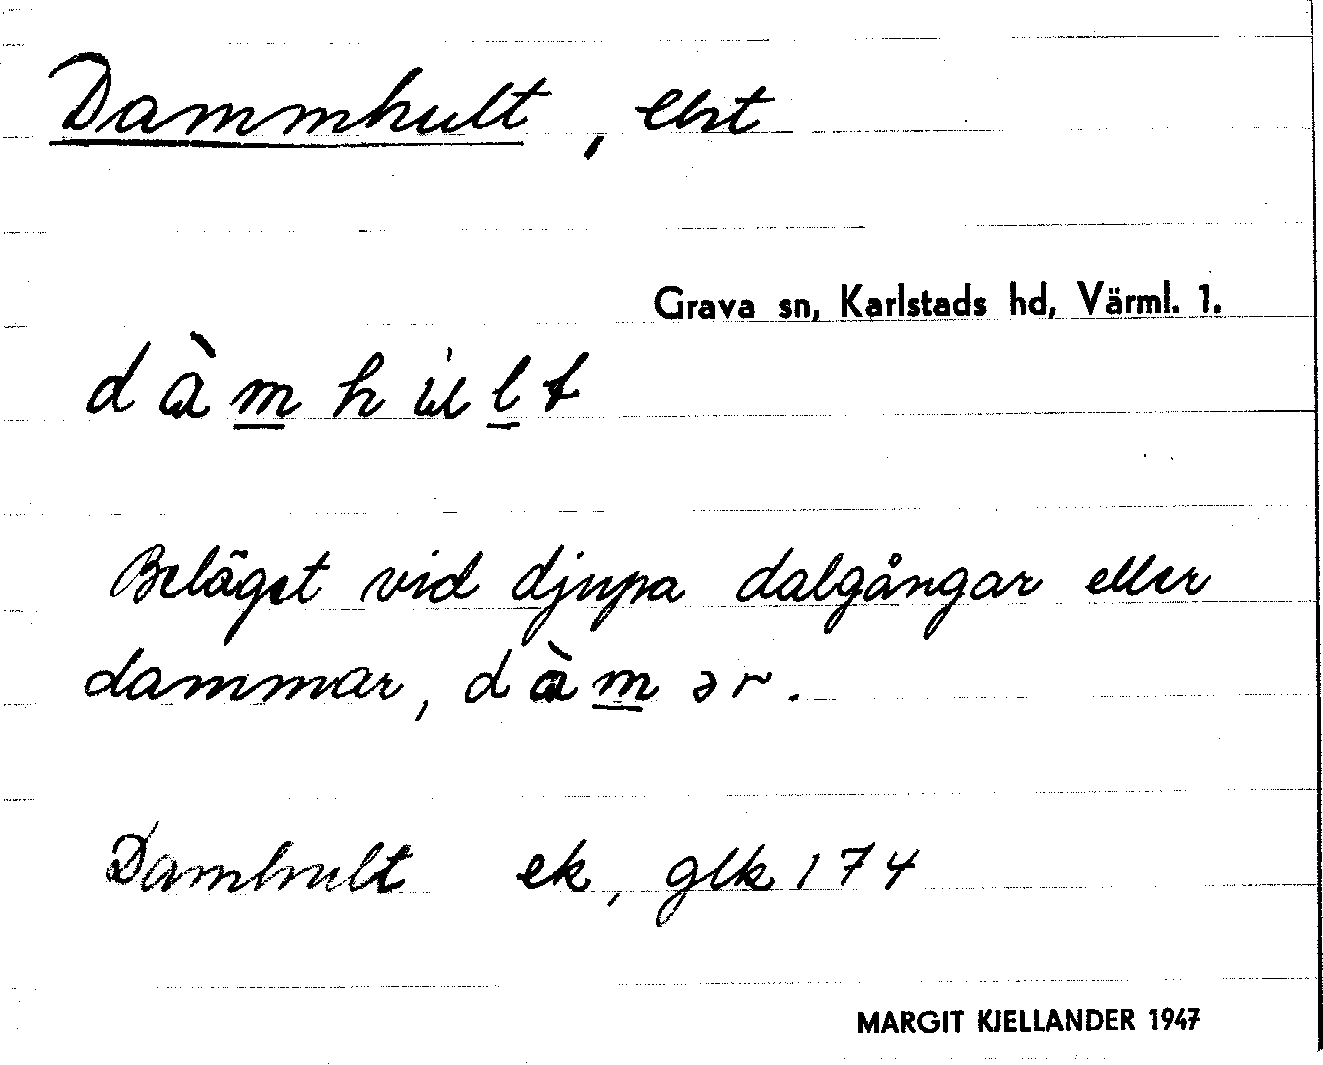 Dammhult, lht
Grava sn, Karlstads hd, Värml. 1.
dàm̲hu̇l̲t
Beläget vid djupa dalgångar eller
dammar, dàm̲ər.
Damhult ek, glk 174
MARGIT KJELLANDER 1947